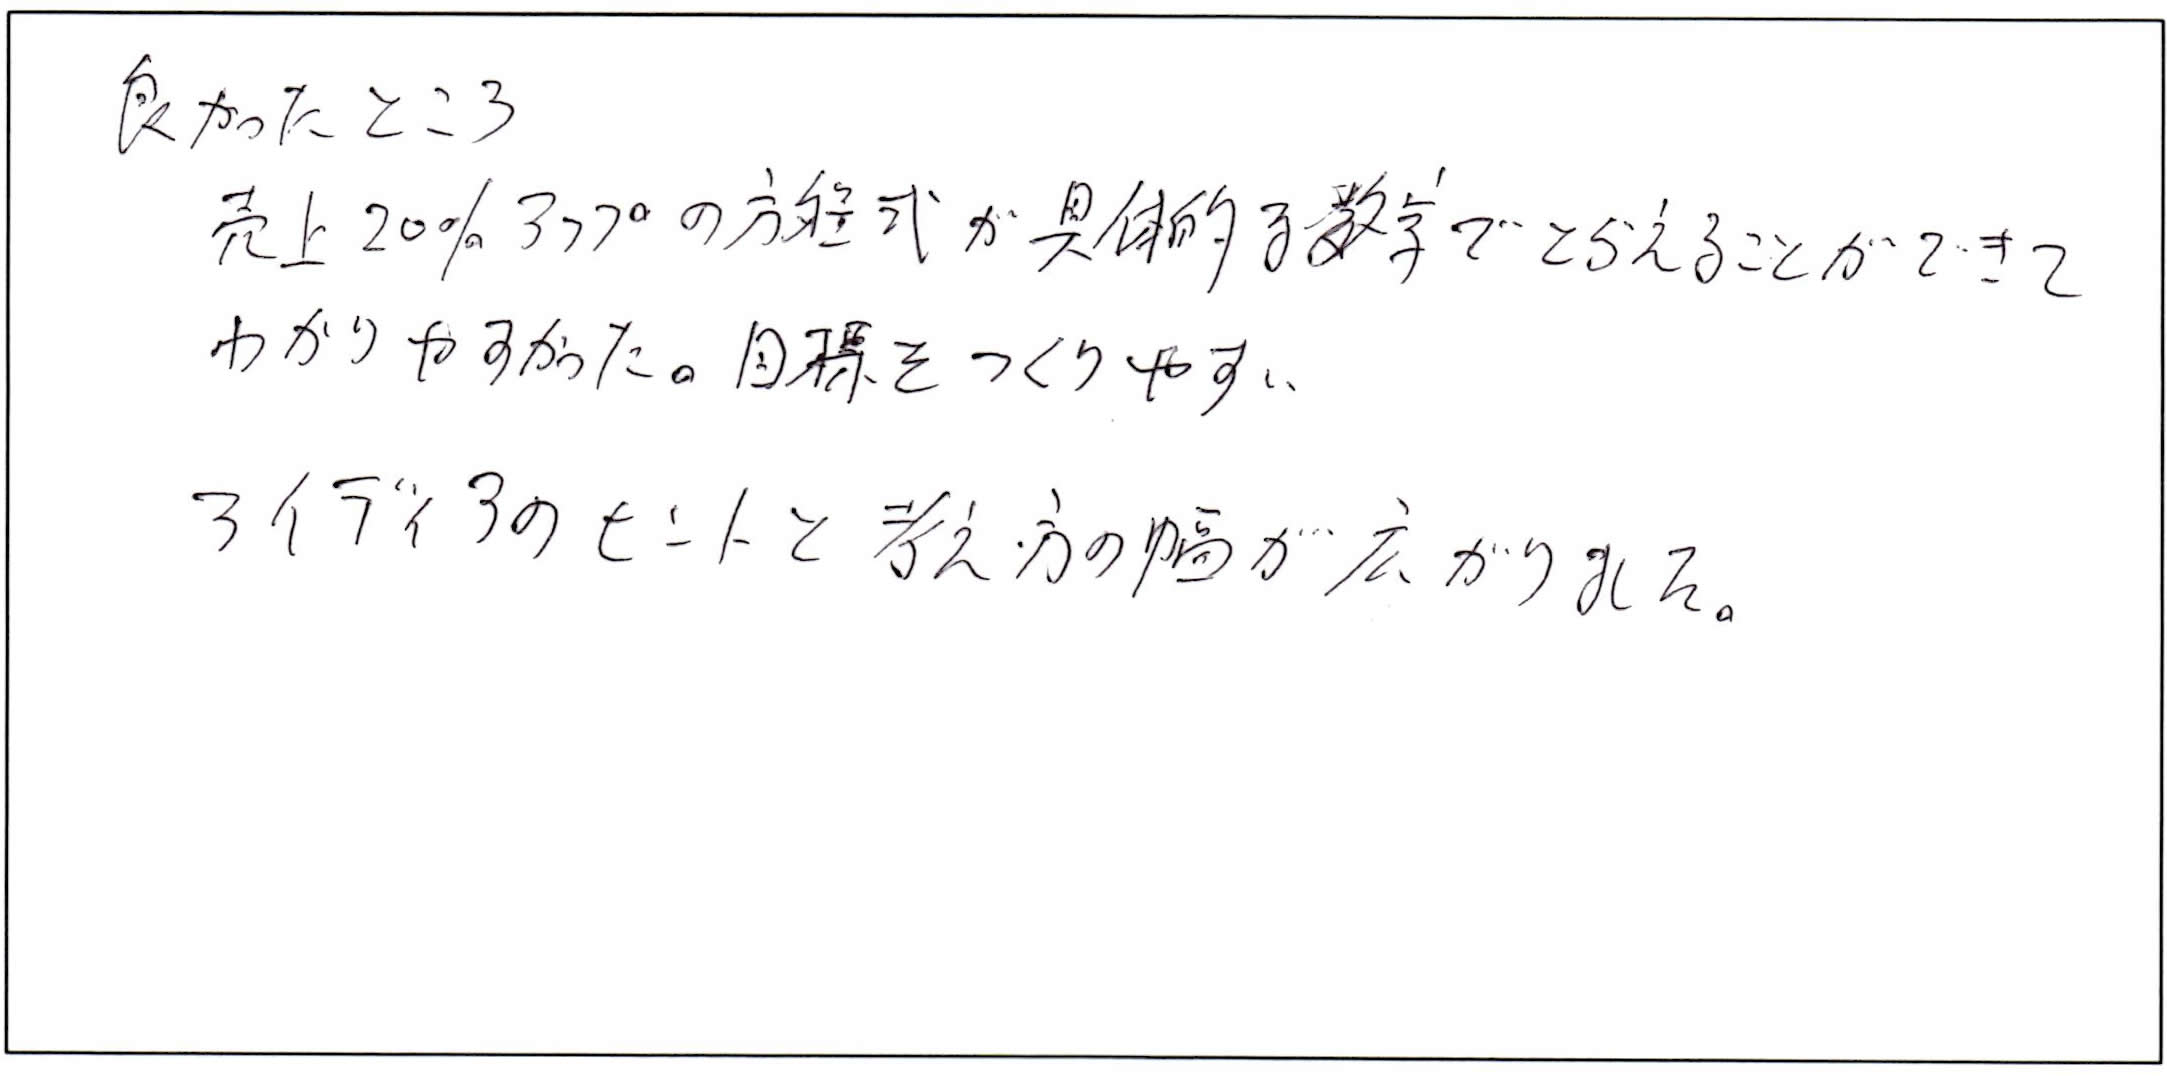 良かったところ
売上20%アップの方程式が具体的な数字でとらえることができて
わかりやすかった。目標をつくりやすい
アイディアのヒントと考え方の幅が広がりました。